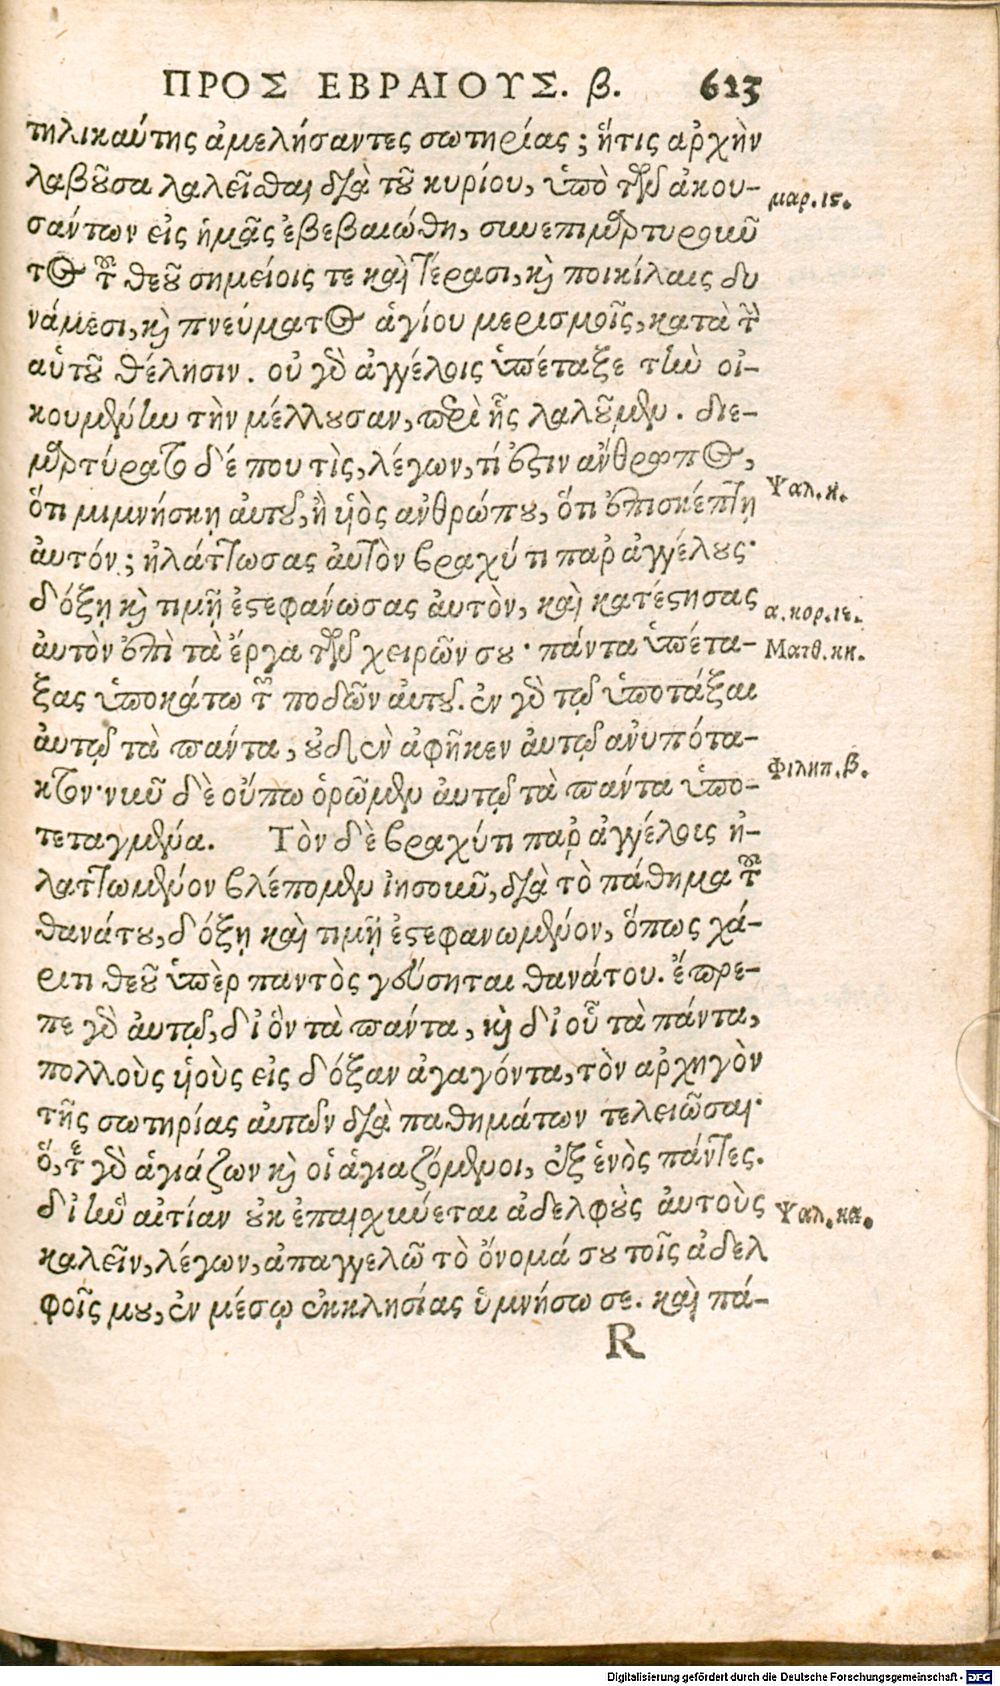 ΠΡΟΣ ΕΒΡΑΙΟΥΣ. β. 623
τηλικαύτης ἀμελήσαντες σωτηρίας; ἥτις ἀρχὴν
λαβοῦσα λαλεῖσθαι διὰ τοῦ κυρίου, ὑπὸ τῶν ἀκου-
μαρ.ις.
σάντων εἰς ἡμᾶς ἐβεβαιώθη, συνεπιμαρτυροῦν
τος τοῦ θεοῦ σημείοις τε καὶ τέρασι, καὶ ποικίλαις δυ
νάμεσι, καὶ πνεύματος ἁγίου μερισμοῖς, κατὰ τὴν
αὑτοῦ θέλησιν. οὐ γὰρ ἀγγέλοις ὑπέταξε τὴν οἰ-
κουμένην τὴν μέλλουσαν, περὶ ἧς λαλοῦμεν. διε-
μαρτύρατο δέ που τὶς, λέγων, τί ἐστιν ἄνθρωπος,
Ψαλ.κ.
ὅτι μιμνήσκῃ αὐτοῦ, ἢ υἱὸς ἀνθρώπου, ὅτι ἐπισκέπτῃ
ἀυτόν; ἠλάττωσας ἀυτὸν βραχύ τι παρ ἀγγέλους·
δόξῃ καὶ τιμῇ ἐστεφάνωσας ἀυτὸν, καὶ κατέστησας
α.κορ.ιε.
ἀυτὸν ἐπὶ τὰ ἔργα τῶν χειρῶν σου· πάντα ὑπέτα-
Ματθ.κκ.
ξας ὑποκάτω τῶν ποδῶν ἀυτοῦ. ἐν γὰρ τῷ ὑποτάξαι
ἀυτῷ τὰ πάντα, οὐδὲν ἀφῆκεν ἀυτῷ ἀνυπότα-
Φιλιπ.β.
κτον· νῦν δὲ οὔπω ὁρῶμεν ἀυτῷ τὰ πάντα ὑπο-
τεταγμένα. Τὸν δὲ βραχύ τι παρ ἀγγέλοις ἠ-
λαττωμένον βλέπομεν ἰησοῦν, διὰ τὸ πάθημα τοῦ
θανάτου, δόξῃ καὶ τιμῇ ἐστεφανωμένον, ὅπως χά-
ριτι θεοῦ ὑπὲρ παντὸς γεύσηται θανάτου. ἔπρε-
πε γὰρ ἀυτῷ, δι ὃν τὰ πάντα, καὶ δι οὗ τὰ πάντα,
πολλοὺς υἱοὺς εἰς δόξαν ἀγαγόντα, τὸν ἀρχηγὸν
τῆς σωτηρίας ἀυτῶν διὰ παθημάτων τελειῶσαι·
ὅ, τε γὰρ ἁγιάζων καὶ οἱ ἁγιαζόμενοι, ἐξ ἑνὸς πάντες.
δι ἣν αἰτίαν οὐκ ἐπαισχύνεται ἀδελφοὺς ἀυτοὺς
Ψαλ.κα.
καλεῖν, λέγων, ἀπαγγελῶ τὸ ὄνομά σου τοῖς ἀδελ
φοῖς μου, ἐν μέσῳ ἐκκλησίας ὑμνήσω σε. καὶ πά-
R
Digitalisierung gefördert durch die Deutsche Forschungsgemeinschaft - DFG